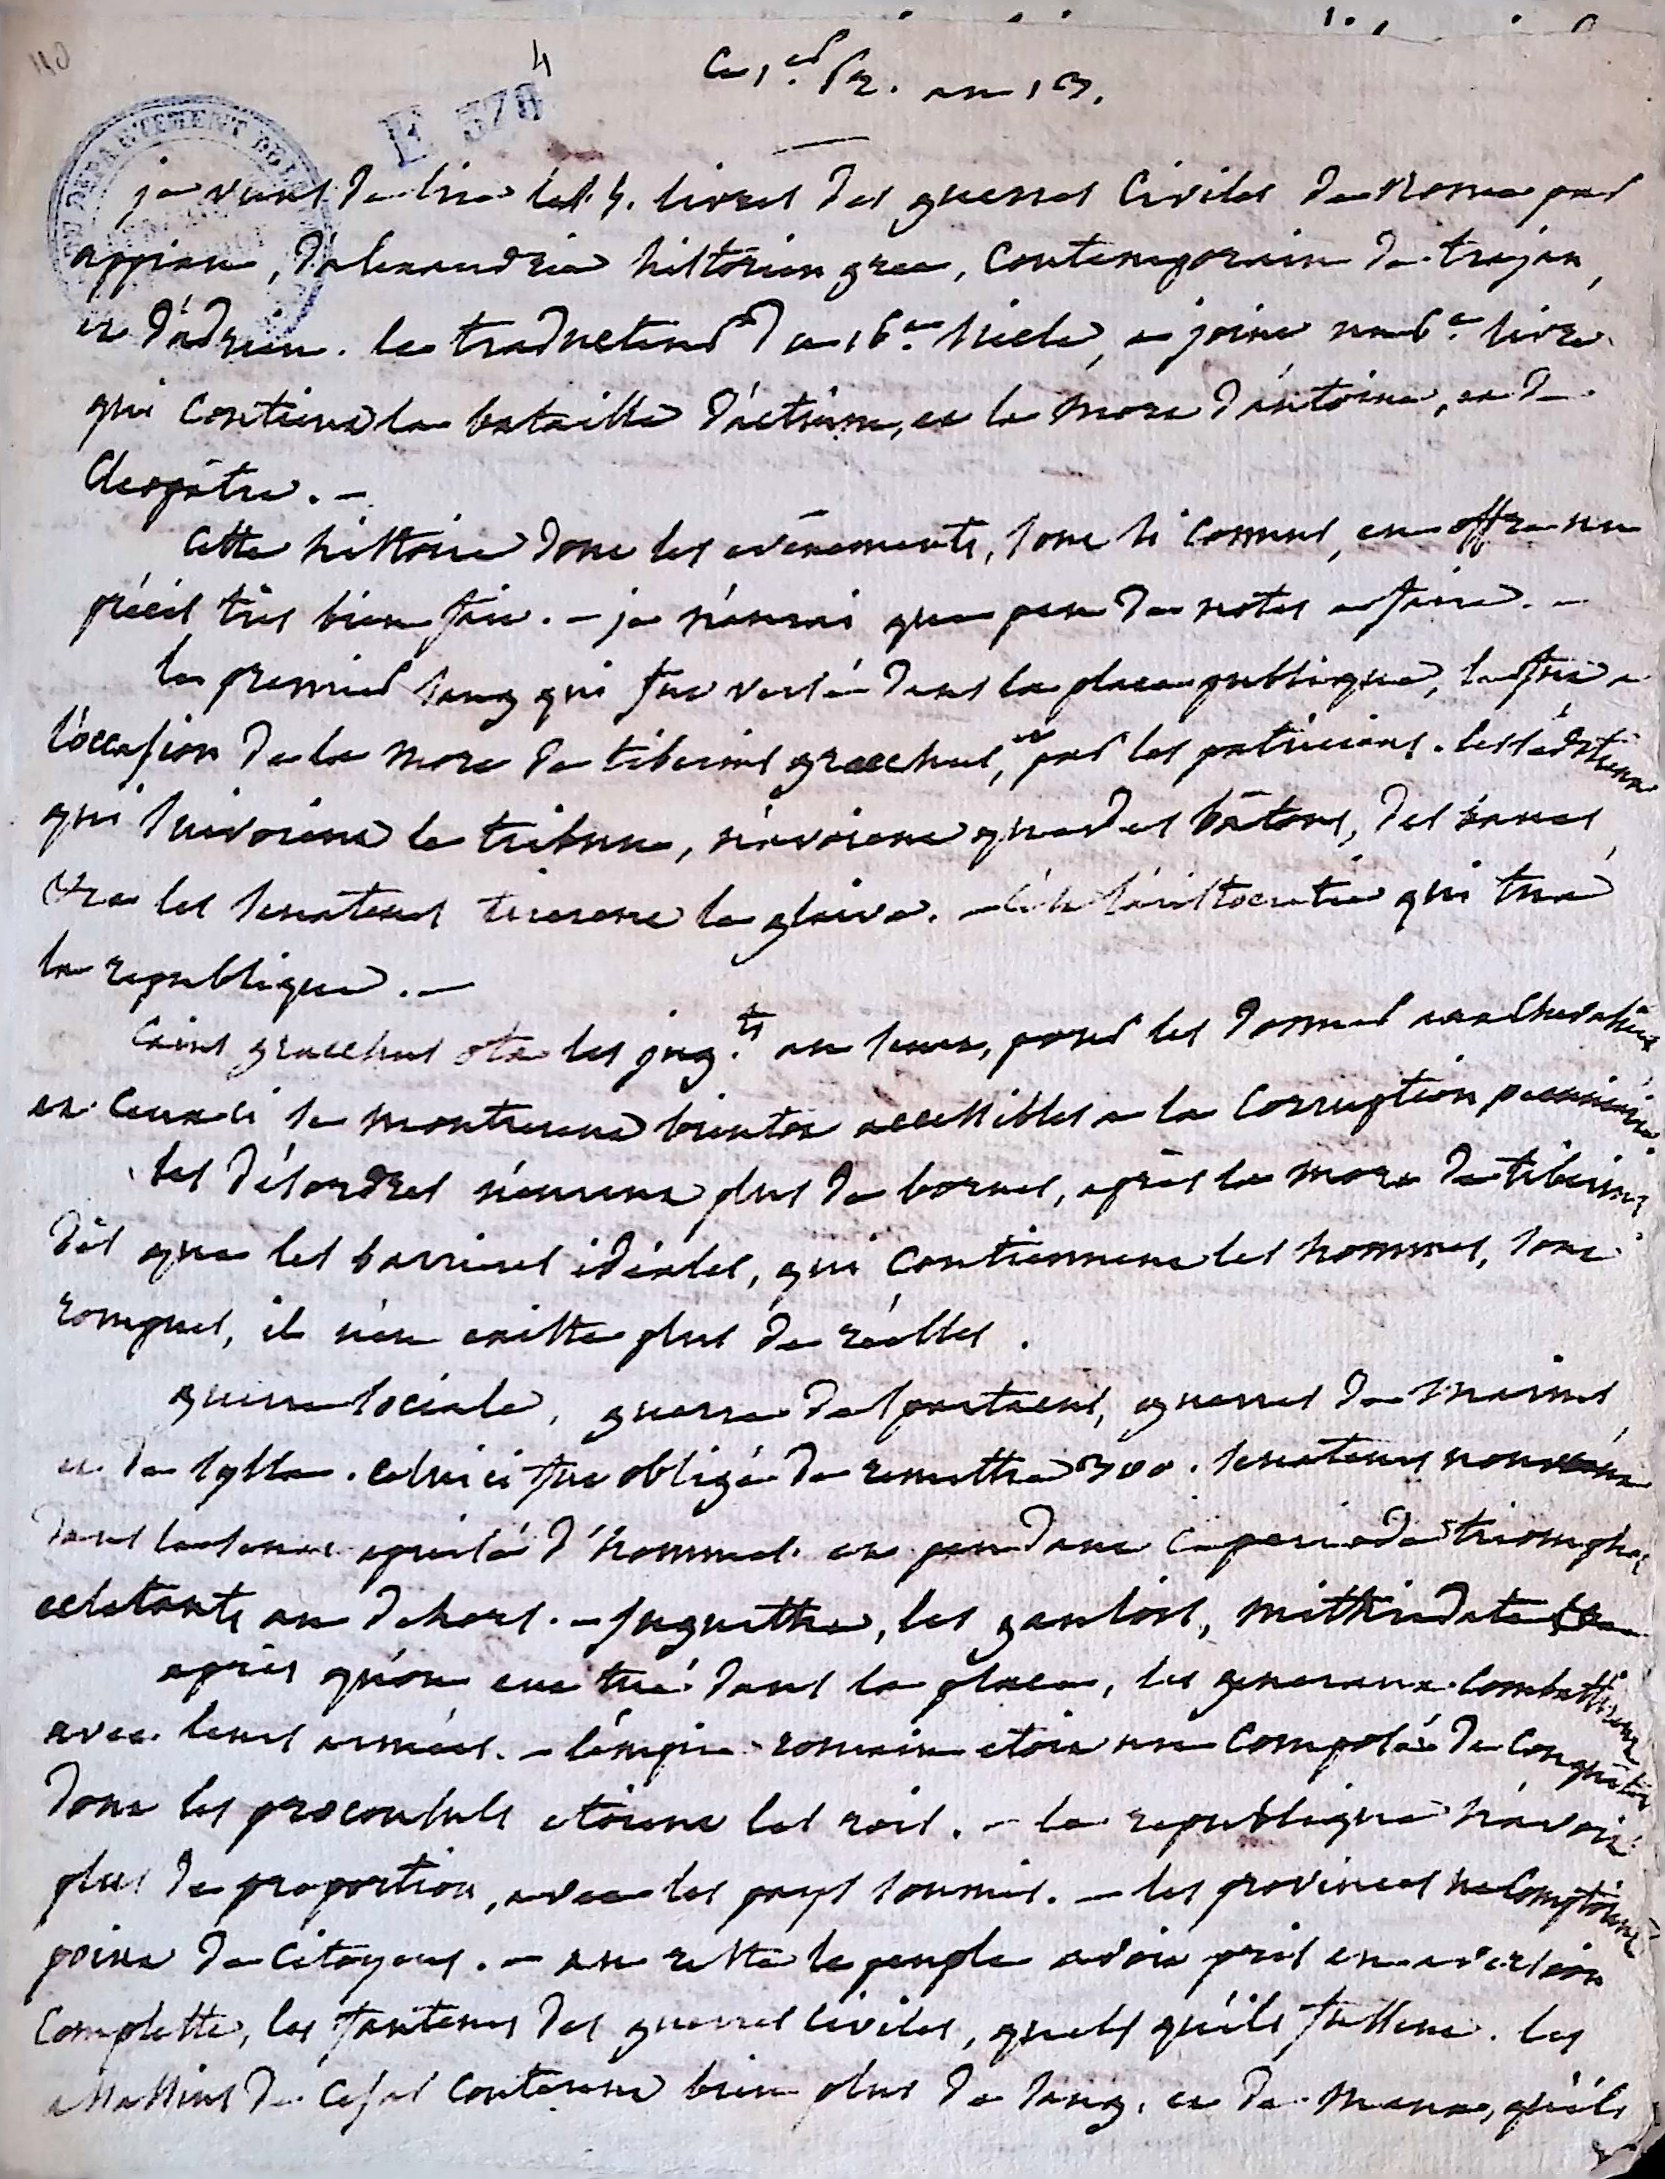 Ce 1.er fr. an 13.
E 378 4
je viens de lire les 5. livres des guerres Civiles de Rome par
appian, d'alexandrie historien grec, Contemporain de trajan,
et d'adrien. le traducteur du 16.e siecle, a joint un 6.e livre
qui Contient la bataille d'actium, et la mort d'antoine, et de
Cleopâtre. –
Cette histoire dont les évènements, sont si Connus, en offre un
précis très bien fait. – je n'aurai que peu de notes a faire. –
le premier sang qui fut versé dans la place publique, le fut a
l'occasion de la mort de tiberius gracchus, et par les patriciens. les séditieux
qui suivoient le tribun, n'avoient que des bâtons, des bancs,
les senateurs tirerent le glaive. – c'est l'aristocratie qui tua
la republique. –
Caius gracchus ota les jug.ts au senat, pour les donner aux chevaliers
et Ceux ci se montrerent bientot accessibles a la Corruption pecuniaire
les désordres n'eurent plus de bornes, après la mort de tiberius
dès que les barrieres idéales, qui Contiennent les hommes, sont
rompues, il n'en existe plus de réelles.
guerre sociale, guerre de spartacus, guerres de marius,
et de sylla. celui ci fut obligé de remettre 300. senateurs nouveaux
dans le senat epuisé d'hommes. et pendant Ce periode triomphes
eclatants au dehors. – Jugurtha, les gaulois, mithridate
après qu'on eut tué dans la place, les generaux Combattirent
avec leurs armées. – l'empire romain etoit un Composé de Conquêtes
dont les proconsuls etoient les rois. – la republique n'avoit
plus de proportion, avec les pays soumis. – les provinces ne Comptoient
point de Citoyens. – au reste le peuple avoit pris en aversion
Complette, les fauteurs des guerres Civiles, quels qu'ils fussent. les
assassins de Cesar Conterent bien plus de sang, et de maux, qu'ils